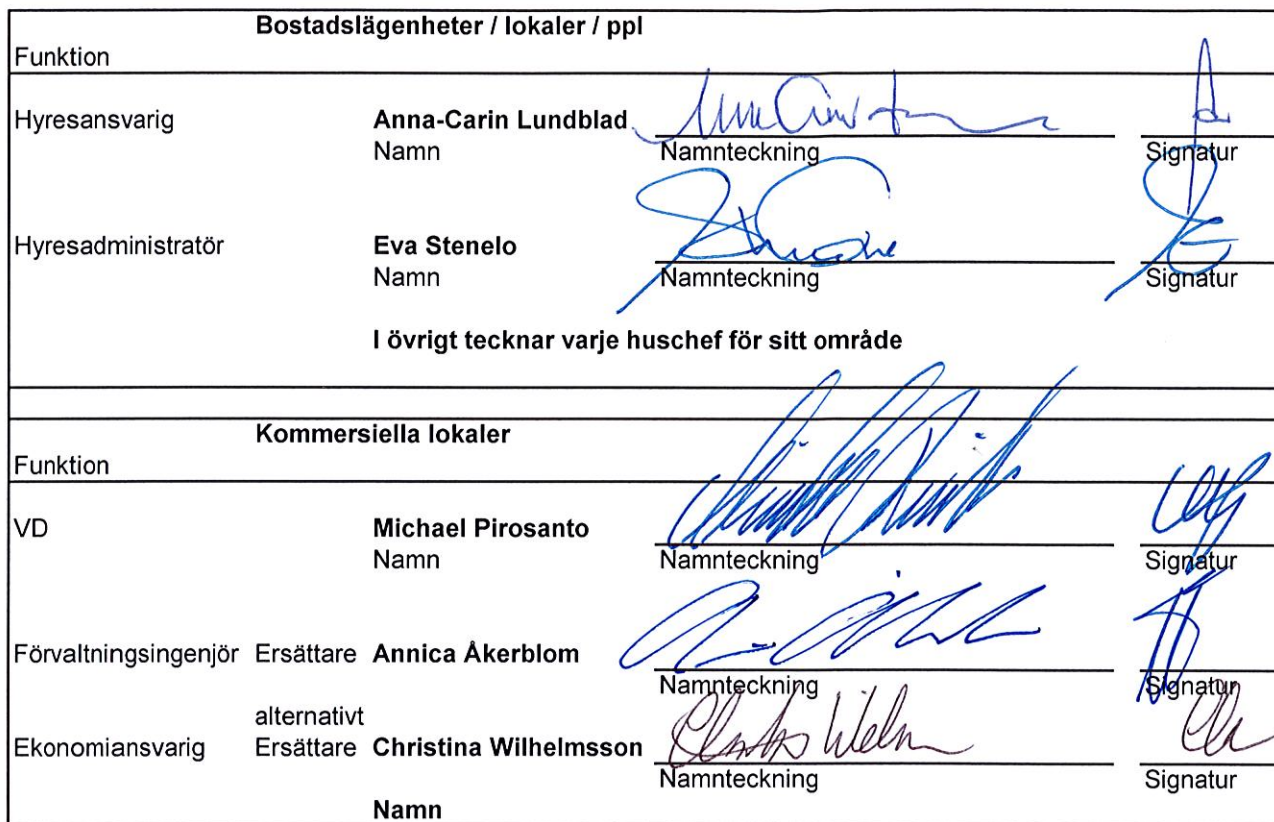 Bostadslägenheter / lokaler / ppl
Funktion
Hyresansvarig Anna-Carin Lundblad
Namn Namnteckning Signatur
Hyresadministratör Eva Stenelo
Namn Namnteckning Signatur
I övrigt tecknar varje huschef för sitt område
Kommersiella lokaler
Funktion
VD Michael Pirosanto
Namn Namnteckning Signatur
Förvaltningsingenjör Ersättare Annica Åkerblom
Namnteckning Signatur
alternativt
Ekonomiansvarig Ersättare Christina Wilhelmsson
Namnteckning Signatur
Namn